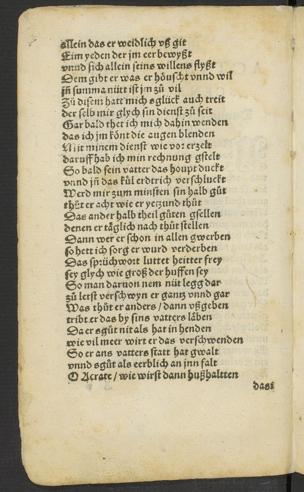 allein das er weidlich vß git
Eim yeden der jm eer bewyßt
vnnd sich allein seins willens flyßt
Dem gibt er was er höuscht vnnd wil
jn̄ summa nüt ist jm zů vil
Zů disem hatt mich s glück auch treit
der selb mir glych sin dienst zů seit
Gar bald thet ich mich dahin wenden
das ich jm könt die augen blenden
Mit minem dienst wie vor erzelt
daruff hab ich min rechnung gstelt
So bald sein vatter das houpt duckt
vnnd jn̄ das kůl erdtrich verschluckt
Werd mir zum minsten sin halb gůt
thůt er acht wie er yetzund thůt
Das ander halb theil gůten gsellen
denen er täglich nach thůt stellen
Dann wer er schon in allen gwerben
so hett ich sorg er wurd verderben
Das sprüchwort luttet heitter frey
sey glych wie groß der huffen sey
So man daruon nem nüt legg dar
zů letst verschwyn er gantz vnnd gar
Was thůt er anders / dann vßgeben
tribt er das by sins vatters läben
Da er s gůt nit als hat in henden
wie vil meer wirt er das verschwenden
So er ans vatters statt hat gwalt
vnnd s gůt als eerblich an jnn falt
O Acrate / wie wirst dann hußhaltten
das